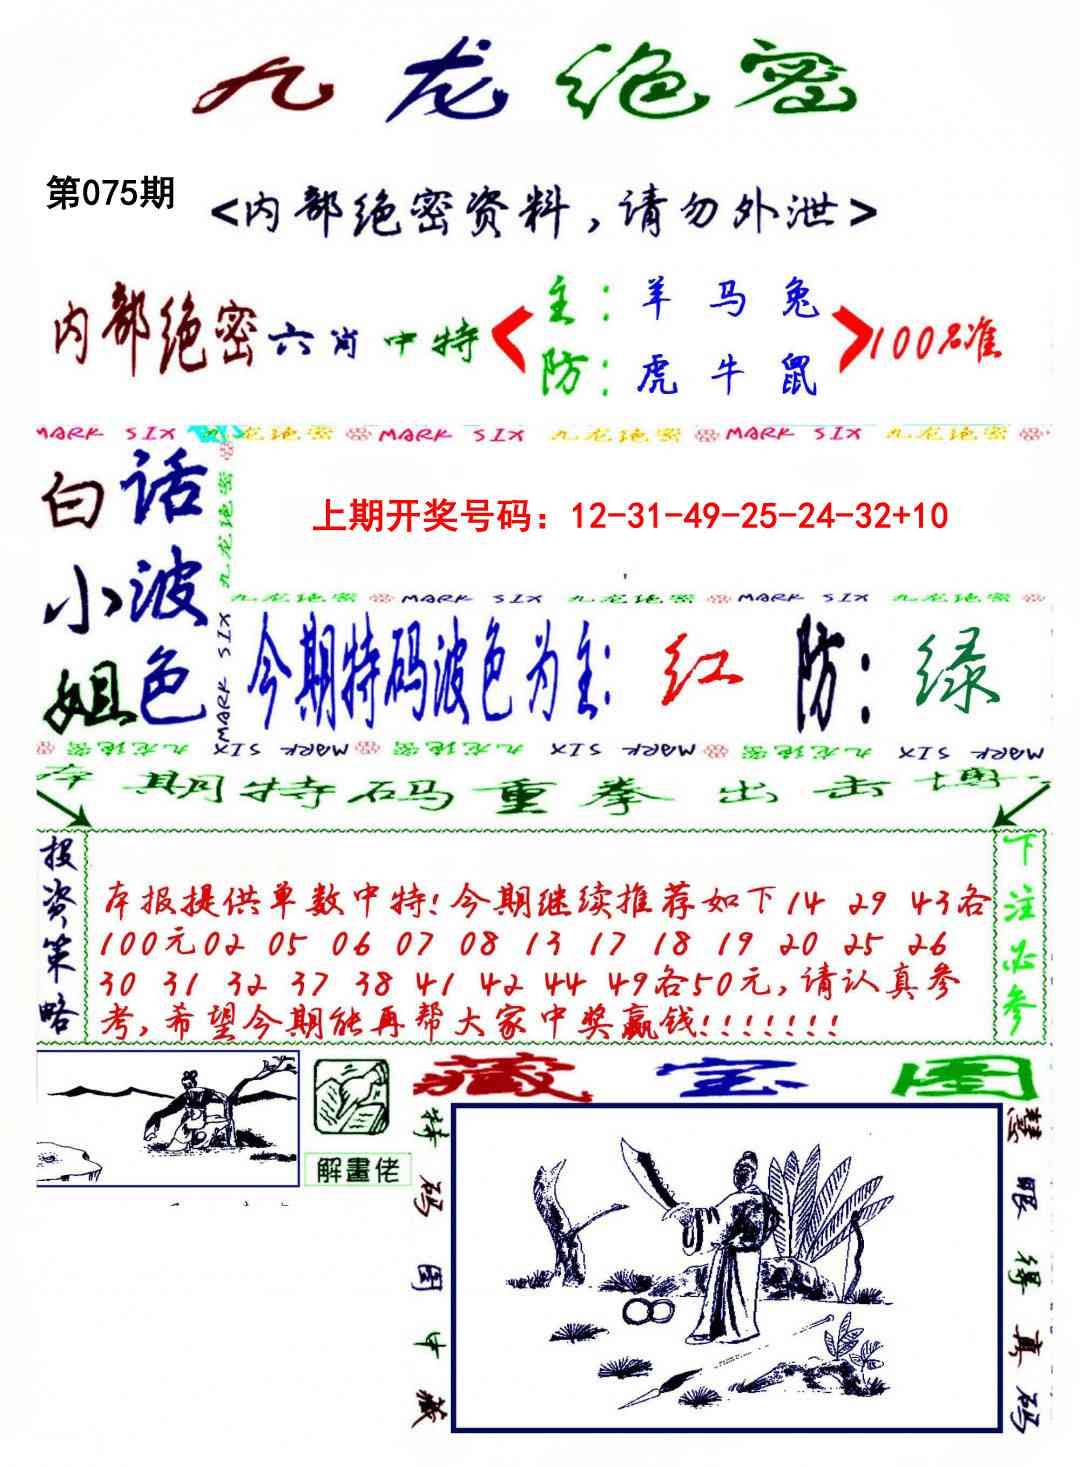 九龙绝密
第075期
<内部绝密资料,请勿外泄>
内部绝密六肖中特
主:羊 马 兔
防:虎 牛 鼠
100%准
MARK SIX 九龙绝密 MARK SIX 九龙绝密 MARK SIX 九龙绝密
白话
小波
姐色
九龙绝密
MARK SIX
上期开奖号码：12-31-49-25-24-32+10
九龙绝密 MARK SIX 九龙绝密 MARK SIX 九龙绝密
今期特码波色为主:红 防:绿
MARK SIX
九龙绝密 MARK SIX 九龙绝密 MARK SIX 九龙绝密 MARK SIX
本期特码重拳出击博
投资策略
本报提供单数中特!今期继续推荐如下14 29 43各
100元02 05 06 07 08 13 17 18 19 20 25 26
30 31 32 37 38 41 42 44 49各50元,请认真参
考,希望今期能再帮大家中奖赢钱!!!!!!!
下注必参
解畫佬
藏宝图
特码图中藏
慧眼得真码